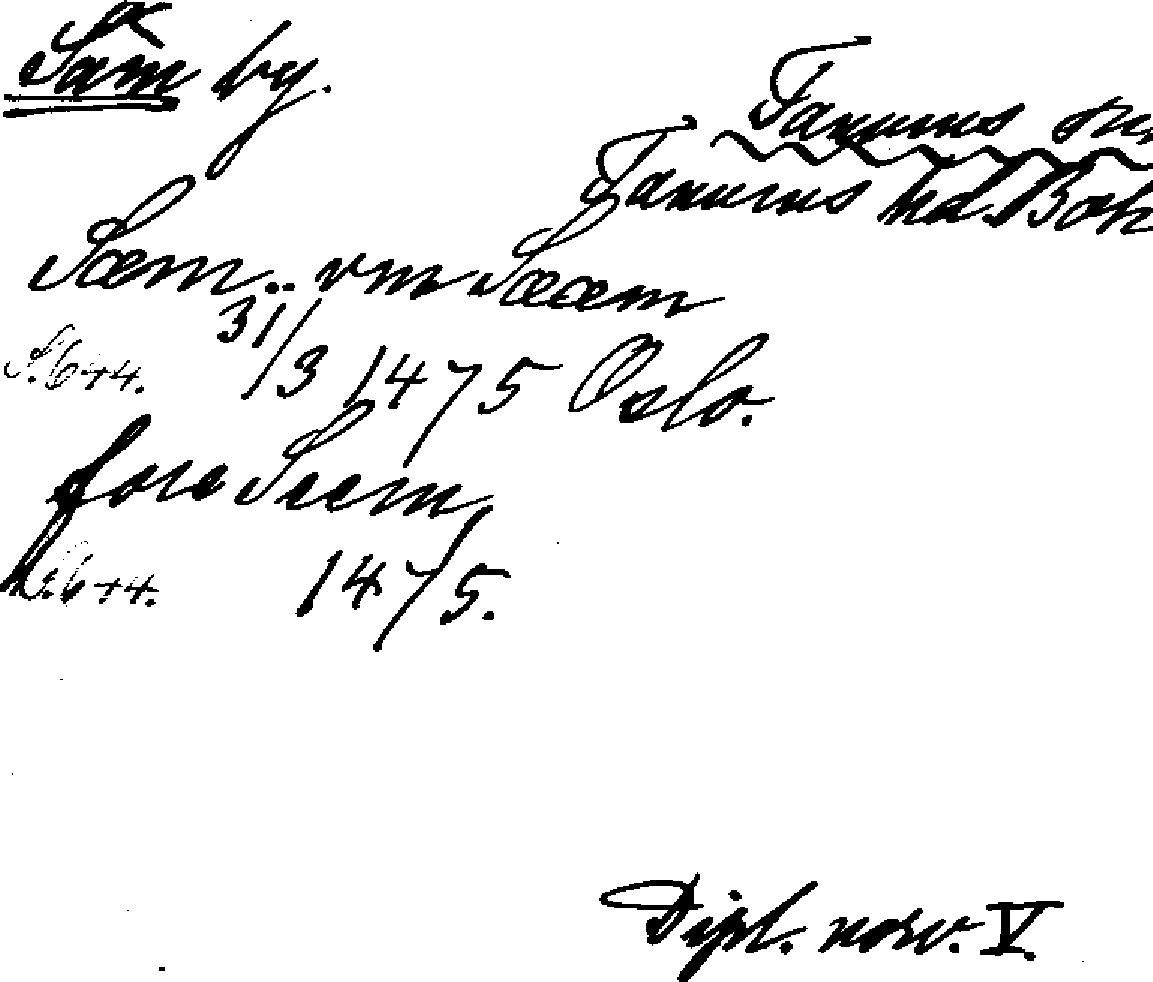 Säm by.
Tanums sn.
Tanums hd. Boh
Sæm.. vm Sææm
S. 644. 31/3 1475 Oslo.
fore Seem,
S. 644. 1475.
Dipl. norv. V.